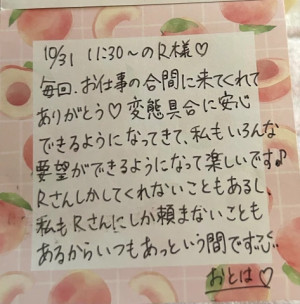 10/31 11:30〜のR様♡
毎回、お仕事の合間に来てくれて
ありがとう♡変態具合に安心
できるようになってきて、私もいろんな
要望ができるようになって楽しいです♪
Rさんしかしてくれないこともあるし、
私もRさんにしか頼まないことも
あるからいつもあっという間です
おとは♡